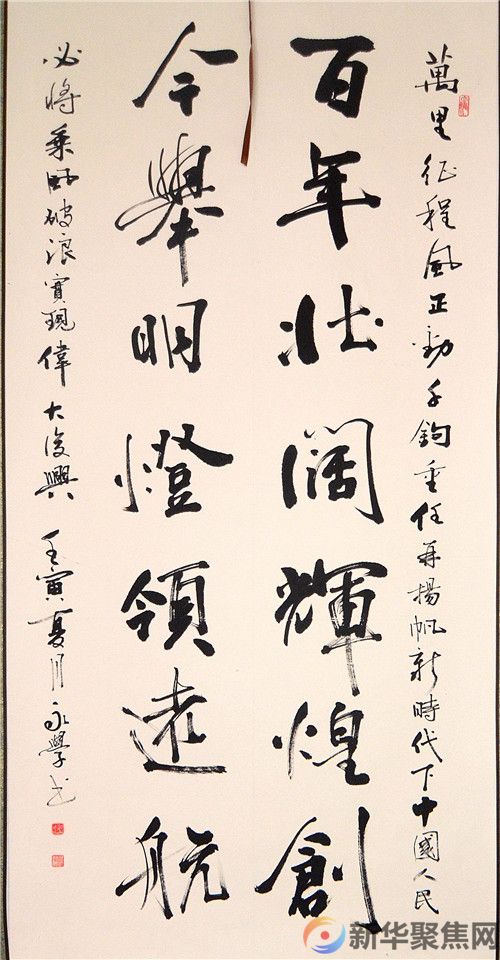 萬里征程風正勁千鈞重任再揚帆新時代下中國人民
百年壮阔輝煌創
今舉明燈領遠航
必將乘風破浪實現偉大復興 壬寅夏月永學书
新华聚焦网